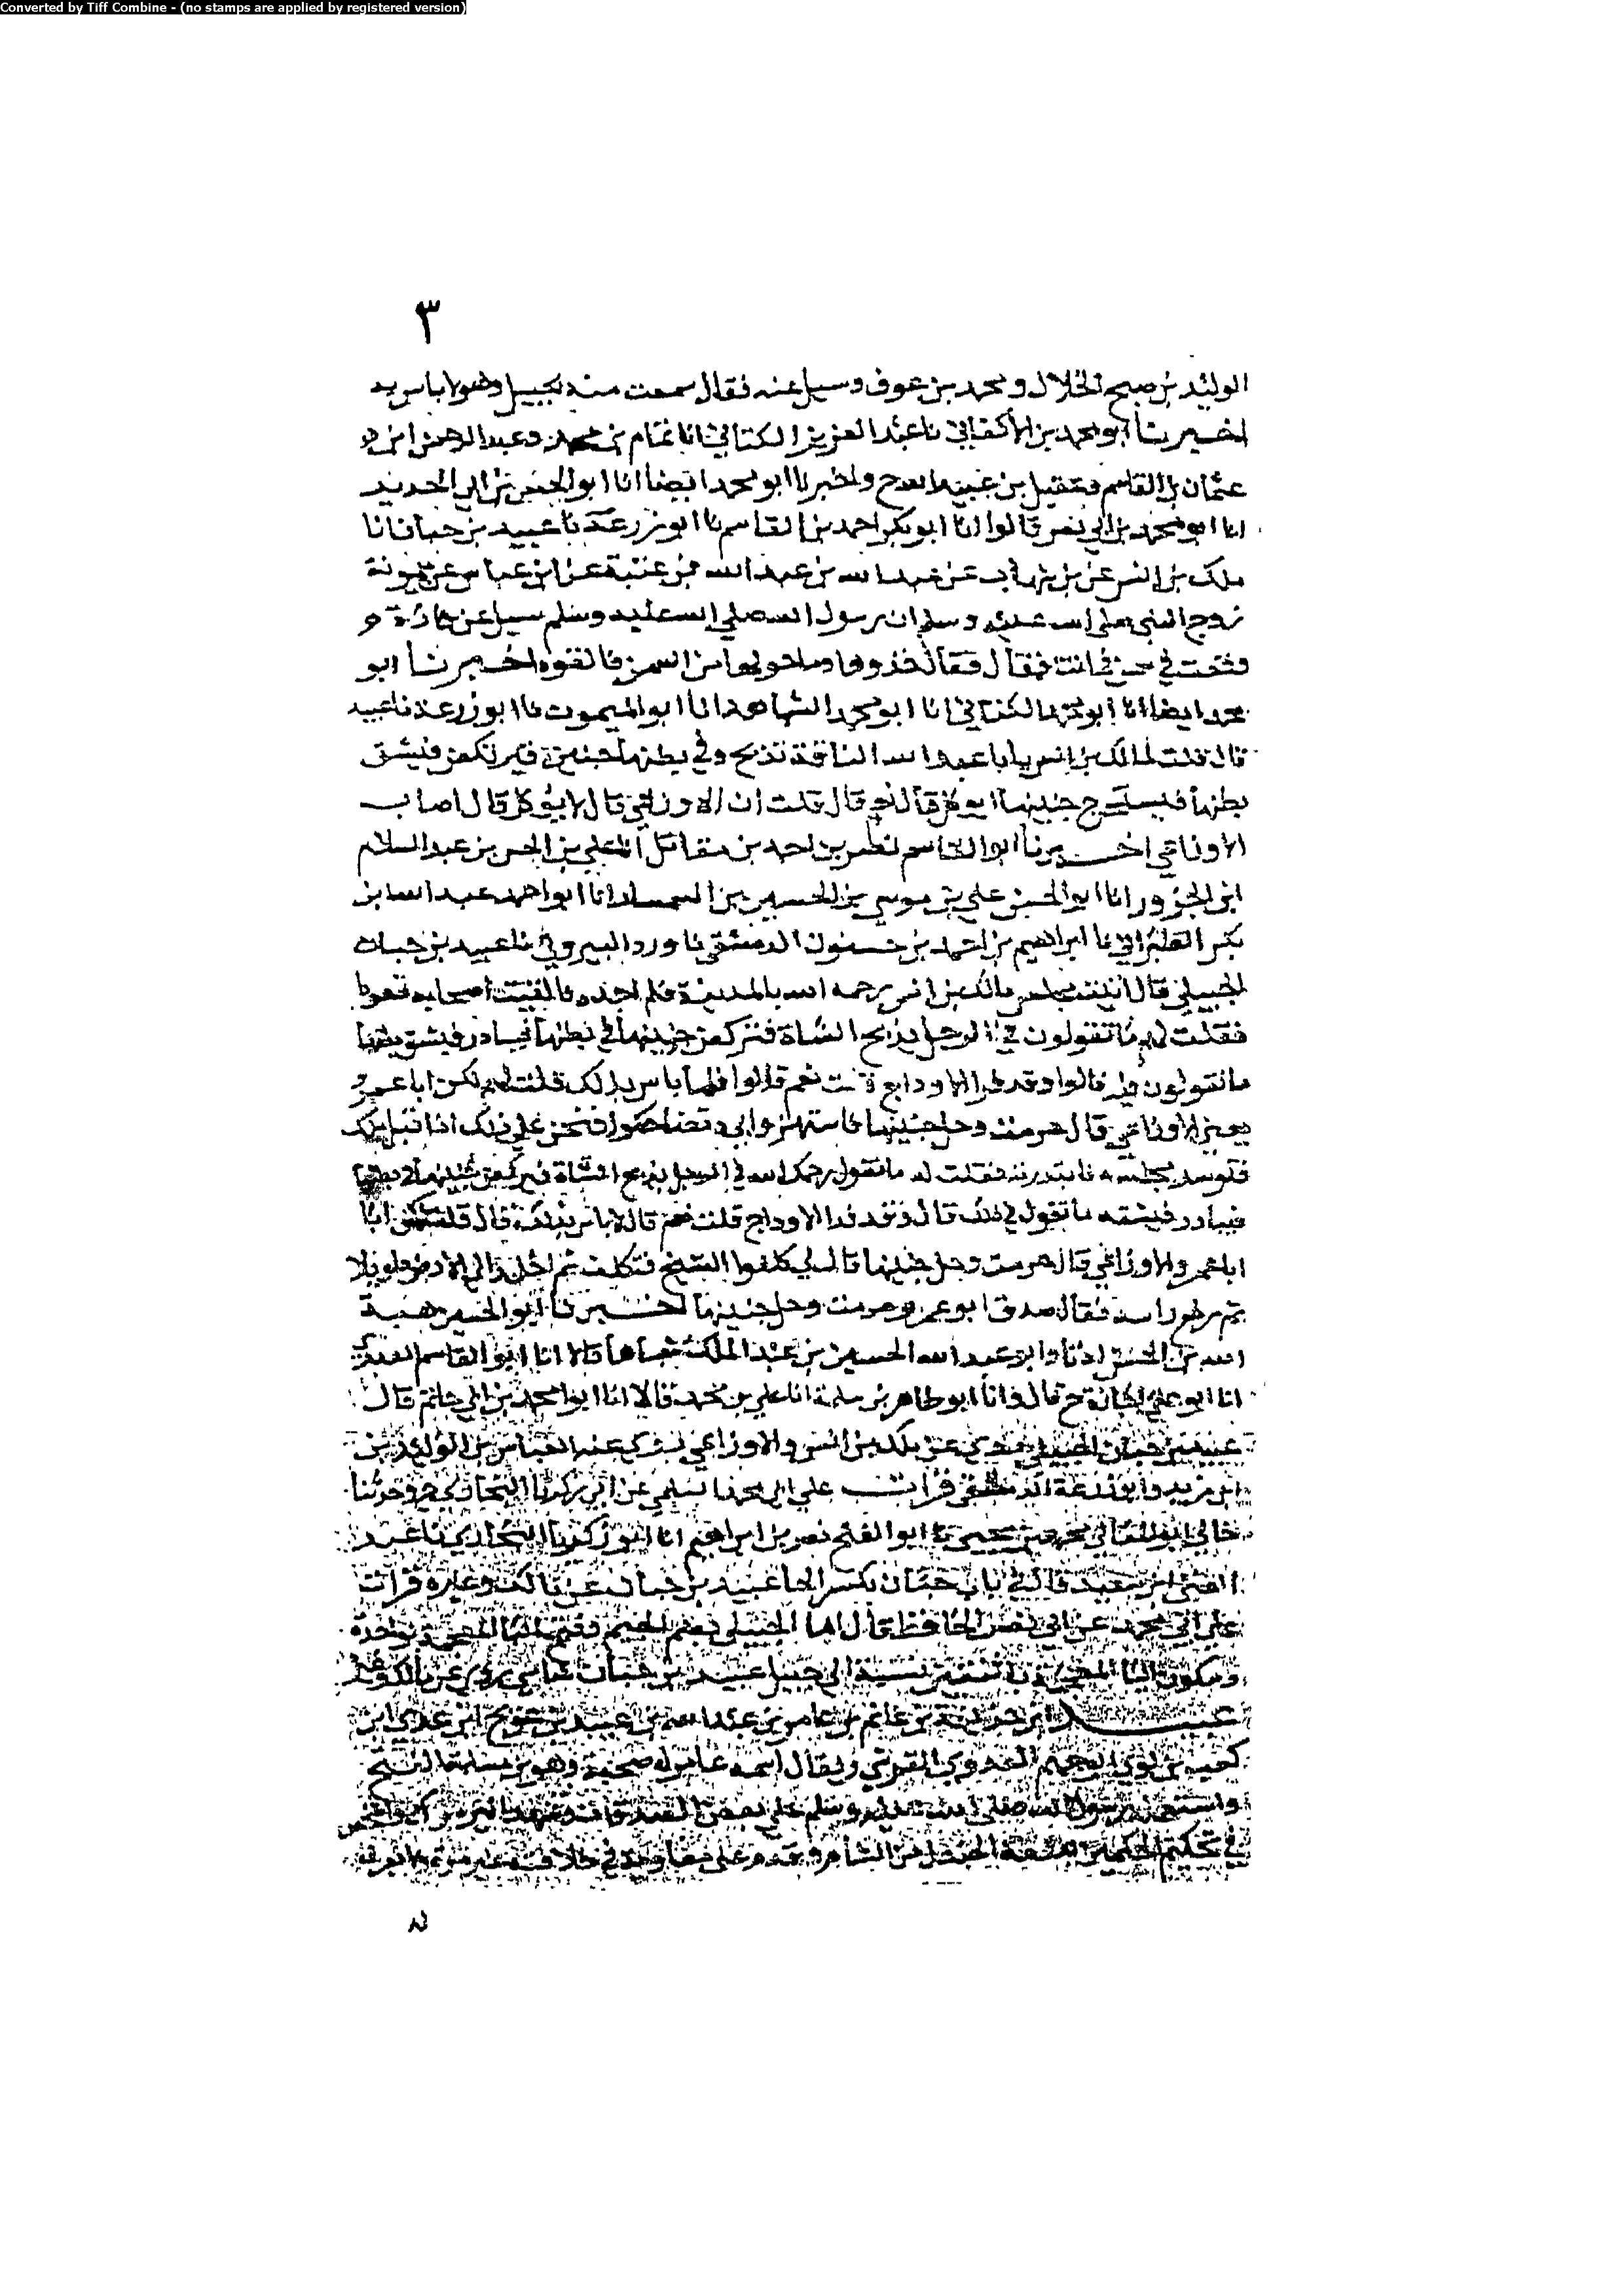 Converted by Tiff Combine - (no stamps are applied by registered version)
٣
الوليد بن صبح الخلال ومحمد بن عوف وسيل عنه فقال سمعت منه بجبيل وهو لا باس به
اخبرنا ابو محمد بن الأكفاني نا عبد العزيز الكتاني انا تمام بن محمد وعبد الرحمن
عثمان بن القاسم وعقيل بن ح واخبرنا ابو محمد ايضا انا ابو الحسن بن ابي الحديد
انا ابو محمد بن ابي نصر قالوا انا ابو بكر احمد بن القاسم نا ابو زرعة نا عبيد بن حبان نا
ملك بن انس عن بن شهاب عن عبد الله بن عبد الله بن عتبة عن ابن عباس عن ميمونة
زوج النبي صلى الله عليه وسلم ان رسول الله صلي الله عليه وسلم سيل عن فارة
وقعت في سمن فماتت فقال خذوها وما حولها من السمن فالقوه اخبرنا ابو
محمد ايضا انا ابو محمد الكتاني انا ابو محمد الشاهد انا ابو الميمون نا ابو زرعة نا عبيد
قال قلت لمالك بن انس يا ابا عبد الله الناقة تذبح وفي بطنها جنين فيرتكض فيشق
بطنها فيستخرج جنينها ايوكل قال نعم قال قلت ان الاوزاعي قال لا يؤكل قال اصاب
الاوزاعي اخبرنا ابو القاسم نصر بن احمد بن مقاتل انا علي بن الحسن بن عبد السلام
ابن الحزور انا ابو الحسن علي بن موسي بن الحسين بن السمسار انا ابو احمد عبد الله بن
بكر الطبراني نا ابراهيم بن احمد بن حسنون الدمشقي نا ورد البيروتي نا عبيد بن حبان
الجبيلي قال اتيت مجلس مالك بن انس رحمه الله بالمدينة فلم اجده فالفيت اصحابه قعودا
فقلت لهم ما تقولون في الرجل يذبح الشاة فتركض جنينها في بطنها فيبادر فيشق بطنها
ما تقولون فيه قالوا وقد فرا الاوداج قلت نعم قالوا فلا باس بذلك قلت لهم لكن ابا عمرو
يعني الاوزاعي قال حرمت وحل جنينها فاستهزوا بي وتضاحكوا فنحن علي ذلك اذ اقبل ملك
مجلسه فابتدرته فقلت له ما تقول رحمك الله في الرجل يذبح الشاة فيركض جنينها في بطنها
فيبادر فيشقه ما تقول في ذلك قال وقد فرا الاوداج قلت نعم قال لا باس بذلك قال قلت لكن ابا
ابا عمرو الاوزاعي قال حرمت وحل جنينها قال لي كلفوا الشيخ فتكلف ثم اخلد الى الارض طويلا
ثم رفع راسه فقال صدق ابو عمرو حرمت وحل جنينها اخبرنا ابو الحسين هبة
الله بن الحسن اذنا وابو عبد الله الحسين بن عبد الملك شفاها قالا انا ابو القاسم العبدي
انا ابو علي اجازة ح قال وانا ابو طاهر بن سلمة انا علي بن محمد قالا انا ابو محمد بن ابي حاتم قال
عبيد بن حبان الجبيلي روي عن ملك بن انس والاوزاعي روي عنه العباس بن الوليد بن
ابن مزيد وابو زرعة الدمشقي قرات علي ابي محمد السلمي عن ابي زكريا البخاري ح وحدثنا
خالي ابو المعالي محمد بن يحيي نا ابو الفتح نصر بن ابراهيم انا ابو زكريا البخاري نا عبد
الغني بن سعيد قال في باب حبان بكسر الحا عبيد بن حبان عن مالك وغيره قرات
علي ابي محمد عن ابي نصر الحافظ قال اما الجبيلي بضم الجيم وفتح البا المعجمة بواحدة
وسكون اليا المعجمة باثنتين نسبة الى جبيل عبيد بن حبان شامي يروي عن مالك وغيره
عبيد ابن حذيفة بن غانم بن عامر بن عبد الله بن عبيد بن عويج ابن عدي ابن
كعب بن لوي ابو جهم العدوي القرشي ويقال اسمه عامر له صحبة وهو من مسلمة الفتح
واستعمله رسول الله صلى الله عليه وسلم علي بعض الصدقات
في تحكيم الحكمين بدومة الجندل من الشام وقدم على معاوية في خلافته غير مرة